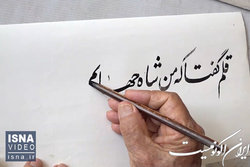 قلم گفتا که من شاه جهانم
ISNA
VIDEO
isna.ir
ایران اکونومیست